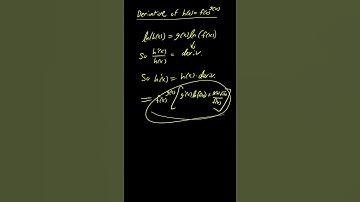 Derivative of h(x) = f(x)^g(x)
ln(h(x)) = g(x)ln(f(x))
So h'(x)/h(x) = deriv.
So h'(x) = h(x) · deriv.
= f(x)^g(x) [g'(x)ln(f(x)) +